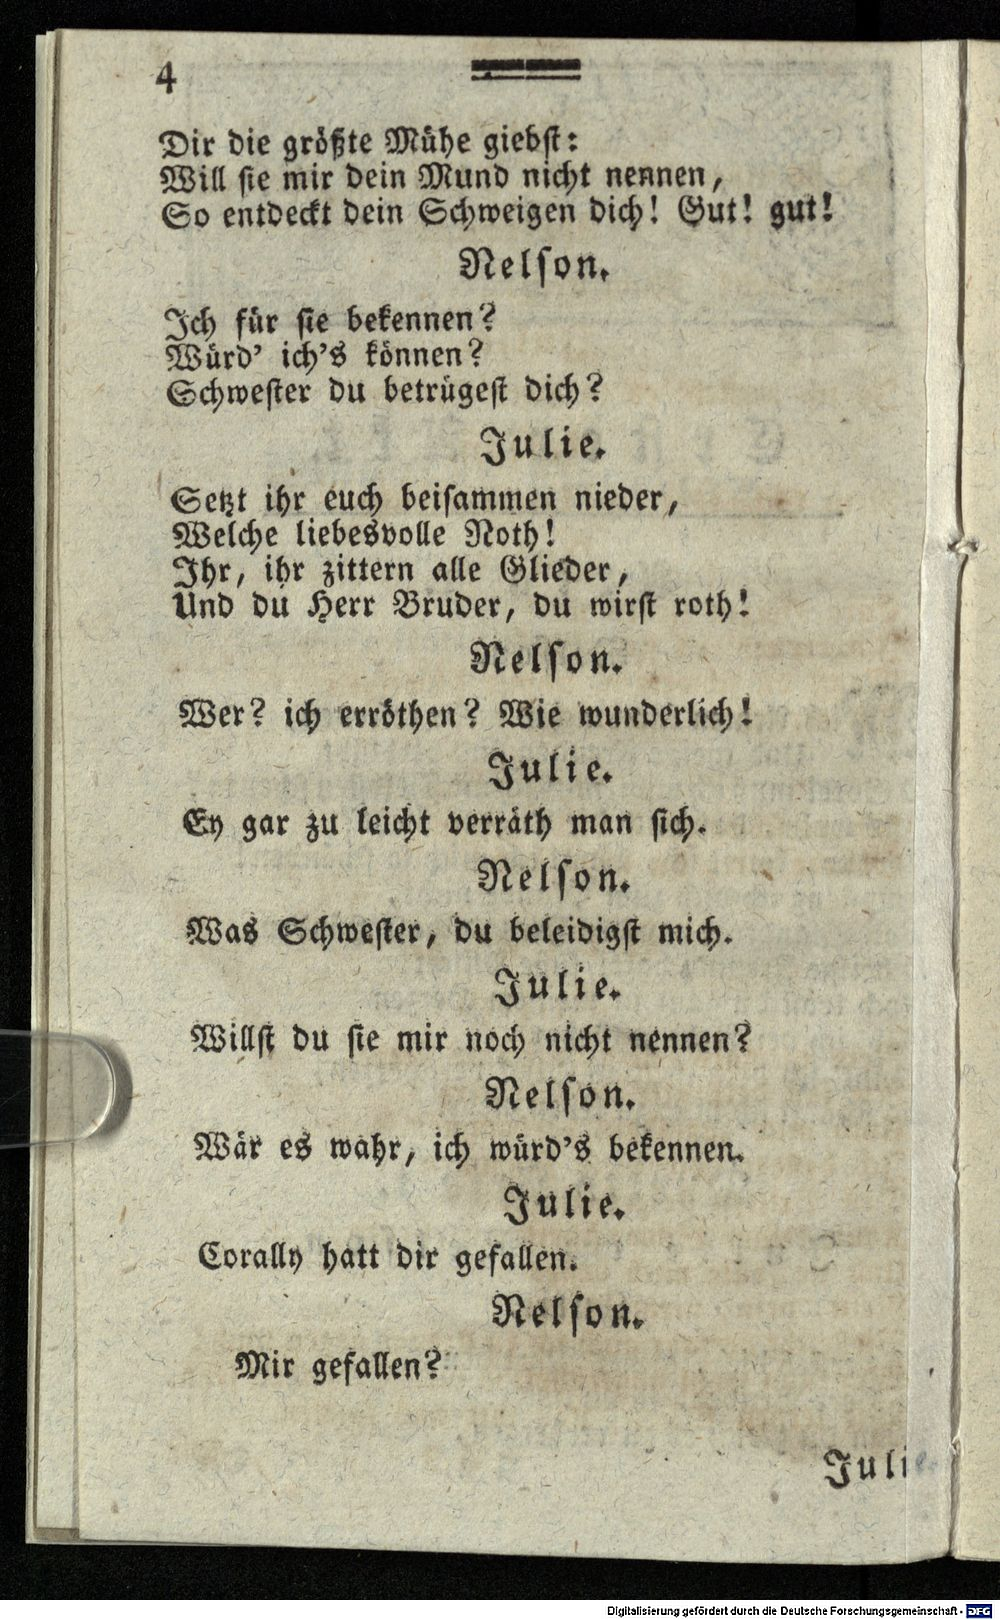 4
Dir die größte Mühe giebst:
Will sie mir dein Mund nicht nennen,
So entdeckt dein Schweigen dich! Gut! gut!
Nelson.
Ich für sie bekennen?
Würd' ich's können?
Schwester du betrügest dich?
Julie.
Setzt ihr euch beisammen nieder,
Welche liebesvolle Noth!
Ihr, ihr zittern alle Glieder,
Und du Herr Bruder, du wirst roth!
Nelson.
Wer? ich erröthen? Wie wunderlich!
Julie.
Ey gar zu leicht verräth man sich.
Nelson.
Was Schwester, du beleidigst mich.
Julie.
Willst du sie mir noch nicht nennen?
Nelson.
Wär es wahr, ich würd's bekennen.
Julie.
Corally hatt dir gefallen.
Nelson.
Mir gefallen?
Julie.
Digitalisierung gefördert durch die Deutsche Forschungsgemeinschaft - DFG